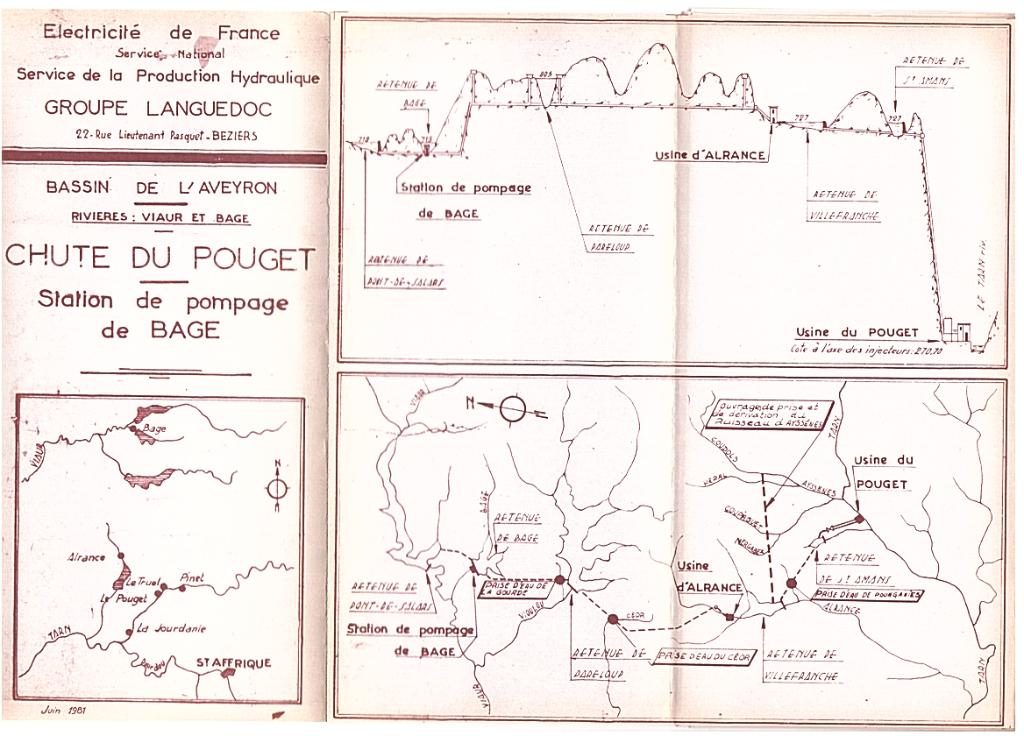 Electricité de France
Service National
Service de la Production Hydraulique
GROUPE LANGUEDOC
22-Rue Lieutenant Pasquet-BEZIERS
BASSIN DE L'AVEYRON
RIVIERES: VIAUR ET BAGE
CHUTE DU POUGET
Station de pompage
de BAGE
Bage
VIAUR
N
Alrance
Le Truel
Pinet
Le Pouget
La Jourdanie
TARN
ST AFFRIQUE
Juin 1981
RETENUE DE
BAGE
805
RETENUE DE
St AMANS
727
727
Usine d'ALRANCE
Station de pompage
de BAGE
RETENUE DE
VILLEFRANCHE
RETENUE DE
PARELOUP
RETENUE DE
PONT-DE-SALARS
LE TARN riv.
Usine du POUGET
Cote à l'axe des injecteurs: 270,70
N
VIAUR
Ouvrages de prise et
de dérivation du
Ruisseau d'AYSSENES
TARN
COUDOLS
Usine du
POUGET
VERNI
AYSSENES
BAGE
RETENUE
DE BAGE
COUPIAGUET
Usine
d'ALRANCE
RETENUE
DE St AMANS
PRISE D'EAU DE
LA GOURDE
PRISE D'EAU DE POURGANIES
RETENUE DE
PONT-DE-SALARS
VIOULOU
CÉOR
ALRANCE
Station de pompage
de BAGE
RETENUE DE
PARELOUP
PRISE D'EAU DU CÉOR
RETENUE DE
VILLEFRANCHE
VIAUR
TARN